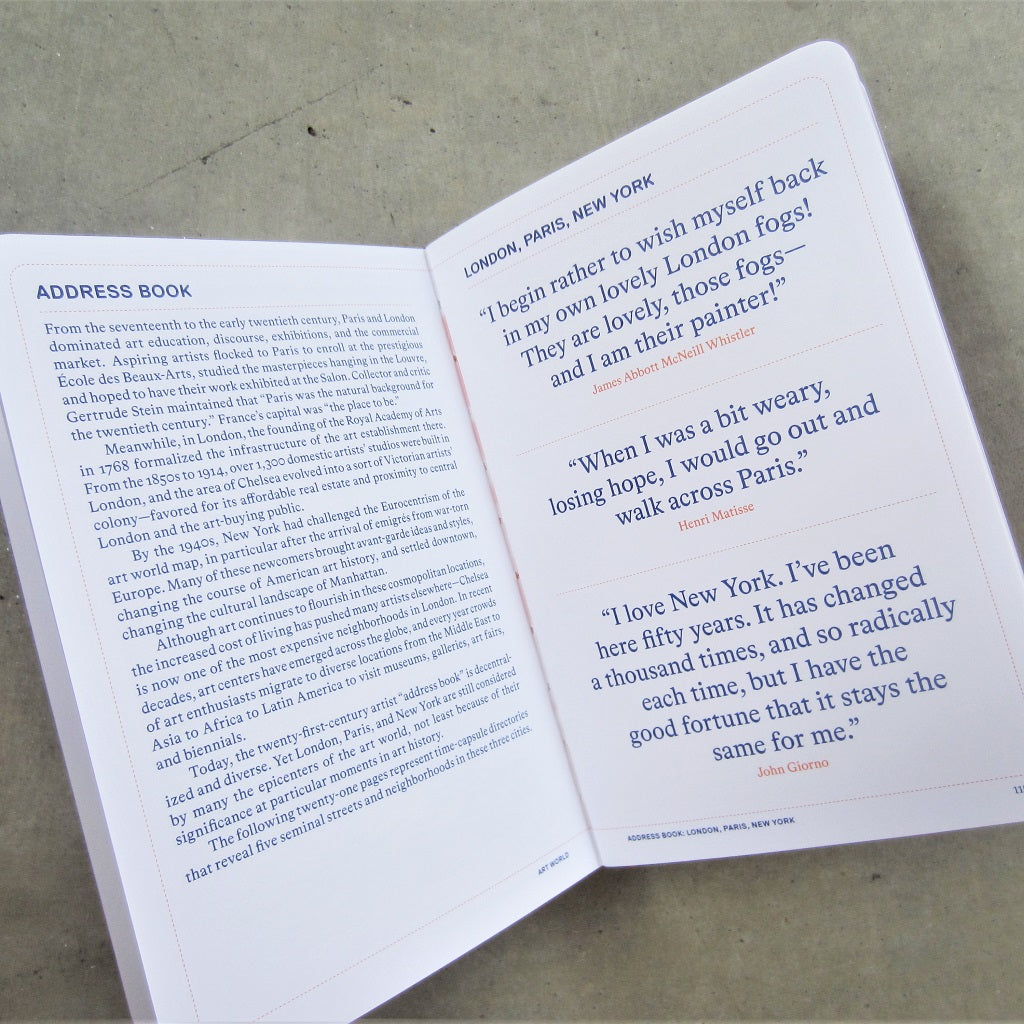 ADDRESS BOOK
From the seventeenth to the early twentieth century, Paris and London
dominated art education, discourse, exhibitions, and the commercial
market. Aspiring artists flocked to Paris to enroll at the prestigious
École des Beaux-Arts, studied the masterpieces hanging in the Louvre,
and hoped to have their work exhibited at the Salon. Collector and critic
Gertrude Stein maintained that “Paris was the natural background for
the twentieth century.” France’s capital was “the place to be.”
Meanwhile, in London, the founding of the Royal Academy of Arts
in 1768 formalized the infrastructure of the art establishment there.
From the 1850s to 1914, over 1,300 domestic artists’ studios were built in
London, and the area of Chelsea evolved into a sort of Victorian artists’
colony—favored for its affordable real estate and proximity to central
London and the art-buying public.
By the 1940s, New York had challenged the Eurocentrism of the
art world map, in particular after the arrival of emigrés from war-torn
Europe. Many of these newcomers brought avant-garde ideas and styles,
changing the course of American art history, and settled downtown,
changing the cultural landscape of Manhattan.
Although art continues to flourish in these cosmopolitan locations,
the increased cost of living has pushed many artists elsewhere—Chelsea
is now one of the most expensive neighborhoods in London. In recent
decades, art centers have emerged across the globe, and every year crowds
of art enthusiasts migrate to diverse locations from the Middle East to
Asia to Africa to Latin America to visit museums, galleries, art fairs,
and biennials.
Today, the twenty-first-century artist “address book” is decentral-
ized and diverse. Yet London, Paris, and New York are still considered
by many the epicenters of the art world, not least because of their
significance at particular moments in art history.
The following twenty-one pages represent time-capsule directories
that reveal five seminal streets and neighborhoods in these three cities.
ART WORLD
LONDON, PARIS, NEW YORK
“I begin rather to wish myself back
in my own lovely London fogs!
They are lovely, those fogs—
and I am their painter!”
James Abbott McNeill Whistler
“When I was a bit weary,
losing hope, I would go out and
walk across Paris.”
Henri Matisse
“I love New York. I’ve been
here fifty years. It has changed
a thousand times, and so radically
each time, but I have the
good fortune that it stays the
same for me.”
John Giorno
ADDRESS BOOK: LONDON, PARIS, NEW YORK